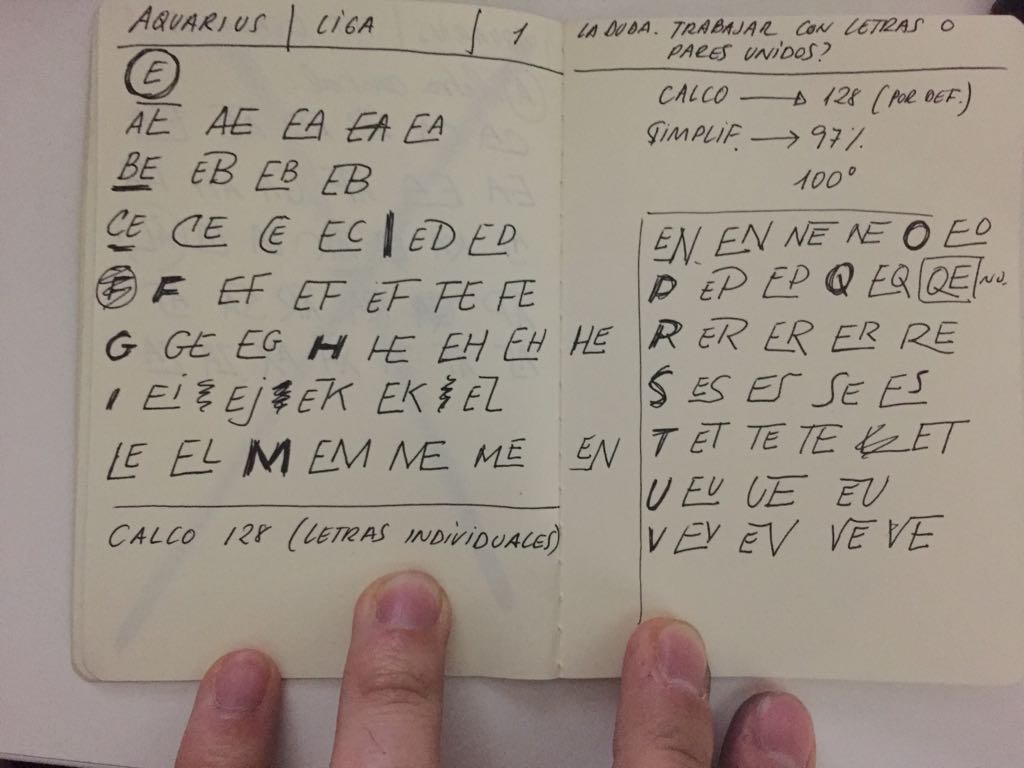 AQUARIUS | LIGA | 1
E
AE AE EA EA EA
BE EB EB EB
CE CE CE EC | ED ED
F EF EF EF FE FE
G GE EG H HE EH EH HE
I Ei Ej EK EK EL
LE EL M EM NE ME EN
CALCO 128 (LETRAS INDIVIDUALES)
LA DUDA. TRABAJAR CON LETRAS O
PARES UNIDOS?
CALCO → 128 (POR DEF.)
SIMPLIF. → 97%
100°
EN EN NE NE O EO
P EP EP Q EQ QE NO.
R ER ER ER RE
S ES ES SE ES
T ET TE TE ET
U EU UE EU
V EV EV VE VE